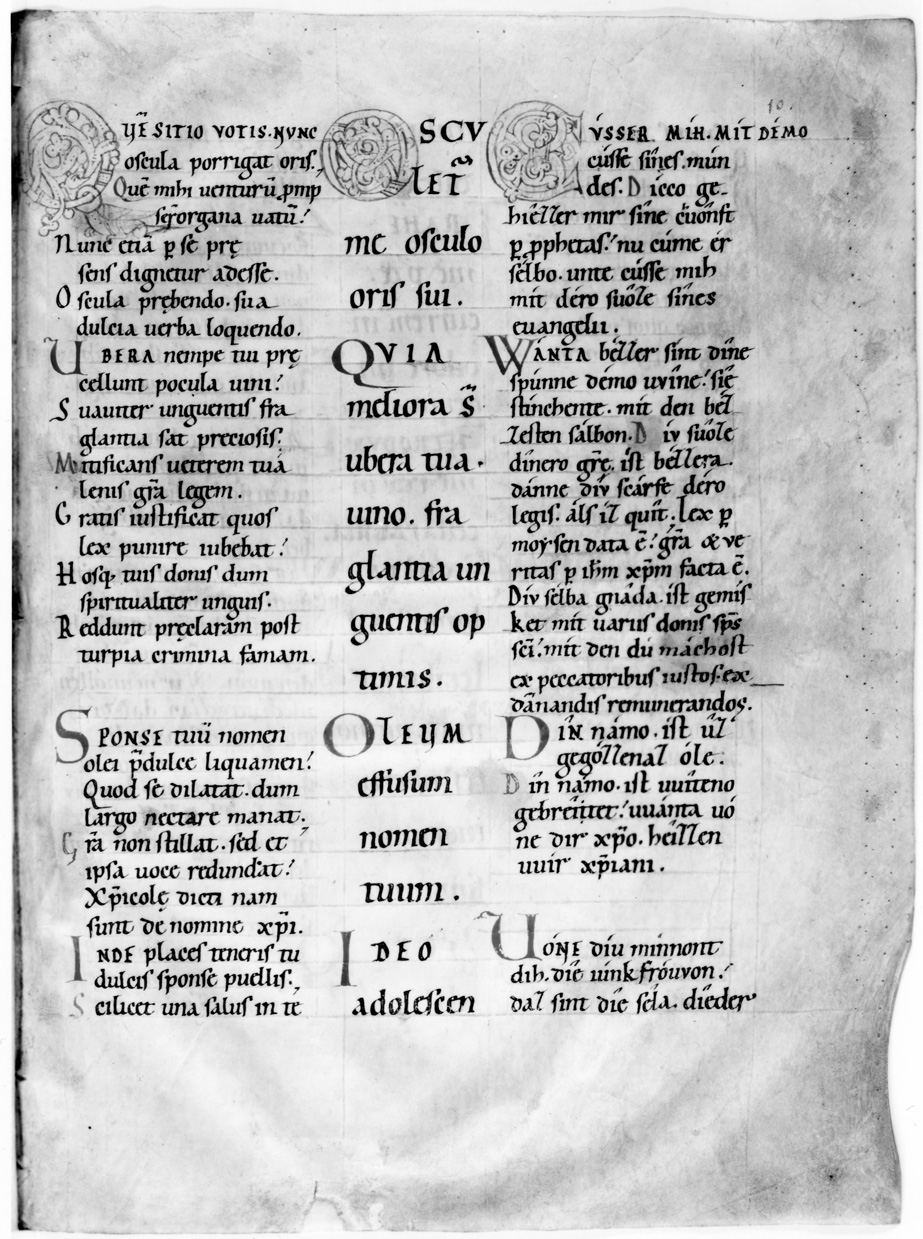 10.
QVĒ SITIO VOTIS. NVNC
oscula porrigat oris.
Quē mihi venturū ꝓmp
seꝝ organa uatū!
Nunc etiā ꝑ se pre̜
sens dignetur adesse.
Oscula pre̜bendo. sua
dulcia uerba loquendo.
UBERA nempe tui pre̜
cellunt pocula uini!
Suauiter unguentis fra
glantia sat preciosis.
Mitificans ueterem tuā
lenis gr̄a legem.
Gratis iustificat quos
lex punire iubebat!
Hosq; tuis donis dum
spiritualiter unguis.
Reddunt pre̜claram post
turpia crimina famam.
SPONSE tuū nomen
olei p̄dulce liquamen!
Quod se dilatat. dum
largo nectare manat.
Gr̄a non stillat. sed et
ipsa uoce redundat!
Xp̄icole̜ dicti nam
sunt de nomine xp̄i.
INDE places teneris tu
dulcis sponse puellis.
Scilicet una salus in te
OSCV
LET᷑
me osculo
oris sui.
QVIA
meliora s̄
ubera tua.
uino. fra
glantia un
guentis op
timis.
OLEVM
effusum
nomen
tuum.
IDEO
adolescen
CVSSER MIH. MIT DÉMO
cússe sînes. mun
des. Dicco ge
hîeller mir sîne cuonft
ꝑ ꝓphetas! nu cúme ér
sélbo. unte cússe mih
mit déro suôle sînes
euangelii.
WÁNTA béller sint dîne
spúnne démo uvîne! sîe
stinchente. mit den bél
lesten sálbon. Div suôle
dînero gr̄e. ist béllera.
dánne dîv scárfe déro
legis. áls iʒ quît. lex ꝑ
moysen data ē! gr̄a & ve
ritas ꝑ ihm̄ xp̄m facta ē.
Dîv sélba gnâda. ist gemis
ket mit uariis donis sp̄s
sc̄i. mit den du máchost
ex peccatoribus iustos. ex
dānandis remunerandos.
DÎN námo. ist ûʒ
gegóʒʒenaʒ óle.
Dîn námo. ist uuîteno
gebréitet! uuánta uó
ne dir xp̄o. héiʒʒen
uuir xp̄iani.
UÓNE diu minnont
dih. dîe iûnkfróuvon!
daʒ sint dîe sêla. dîeder